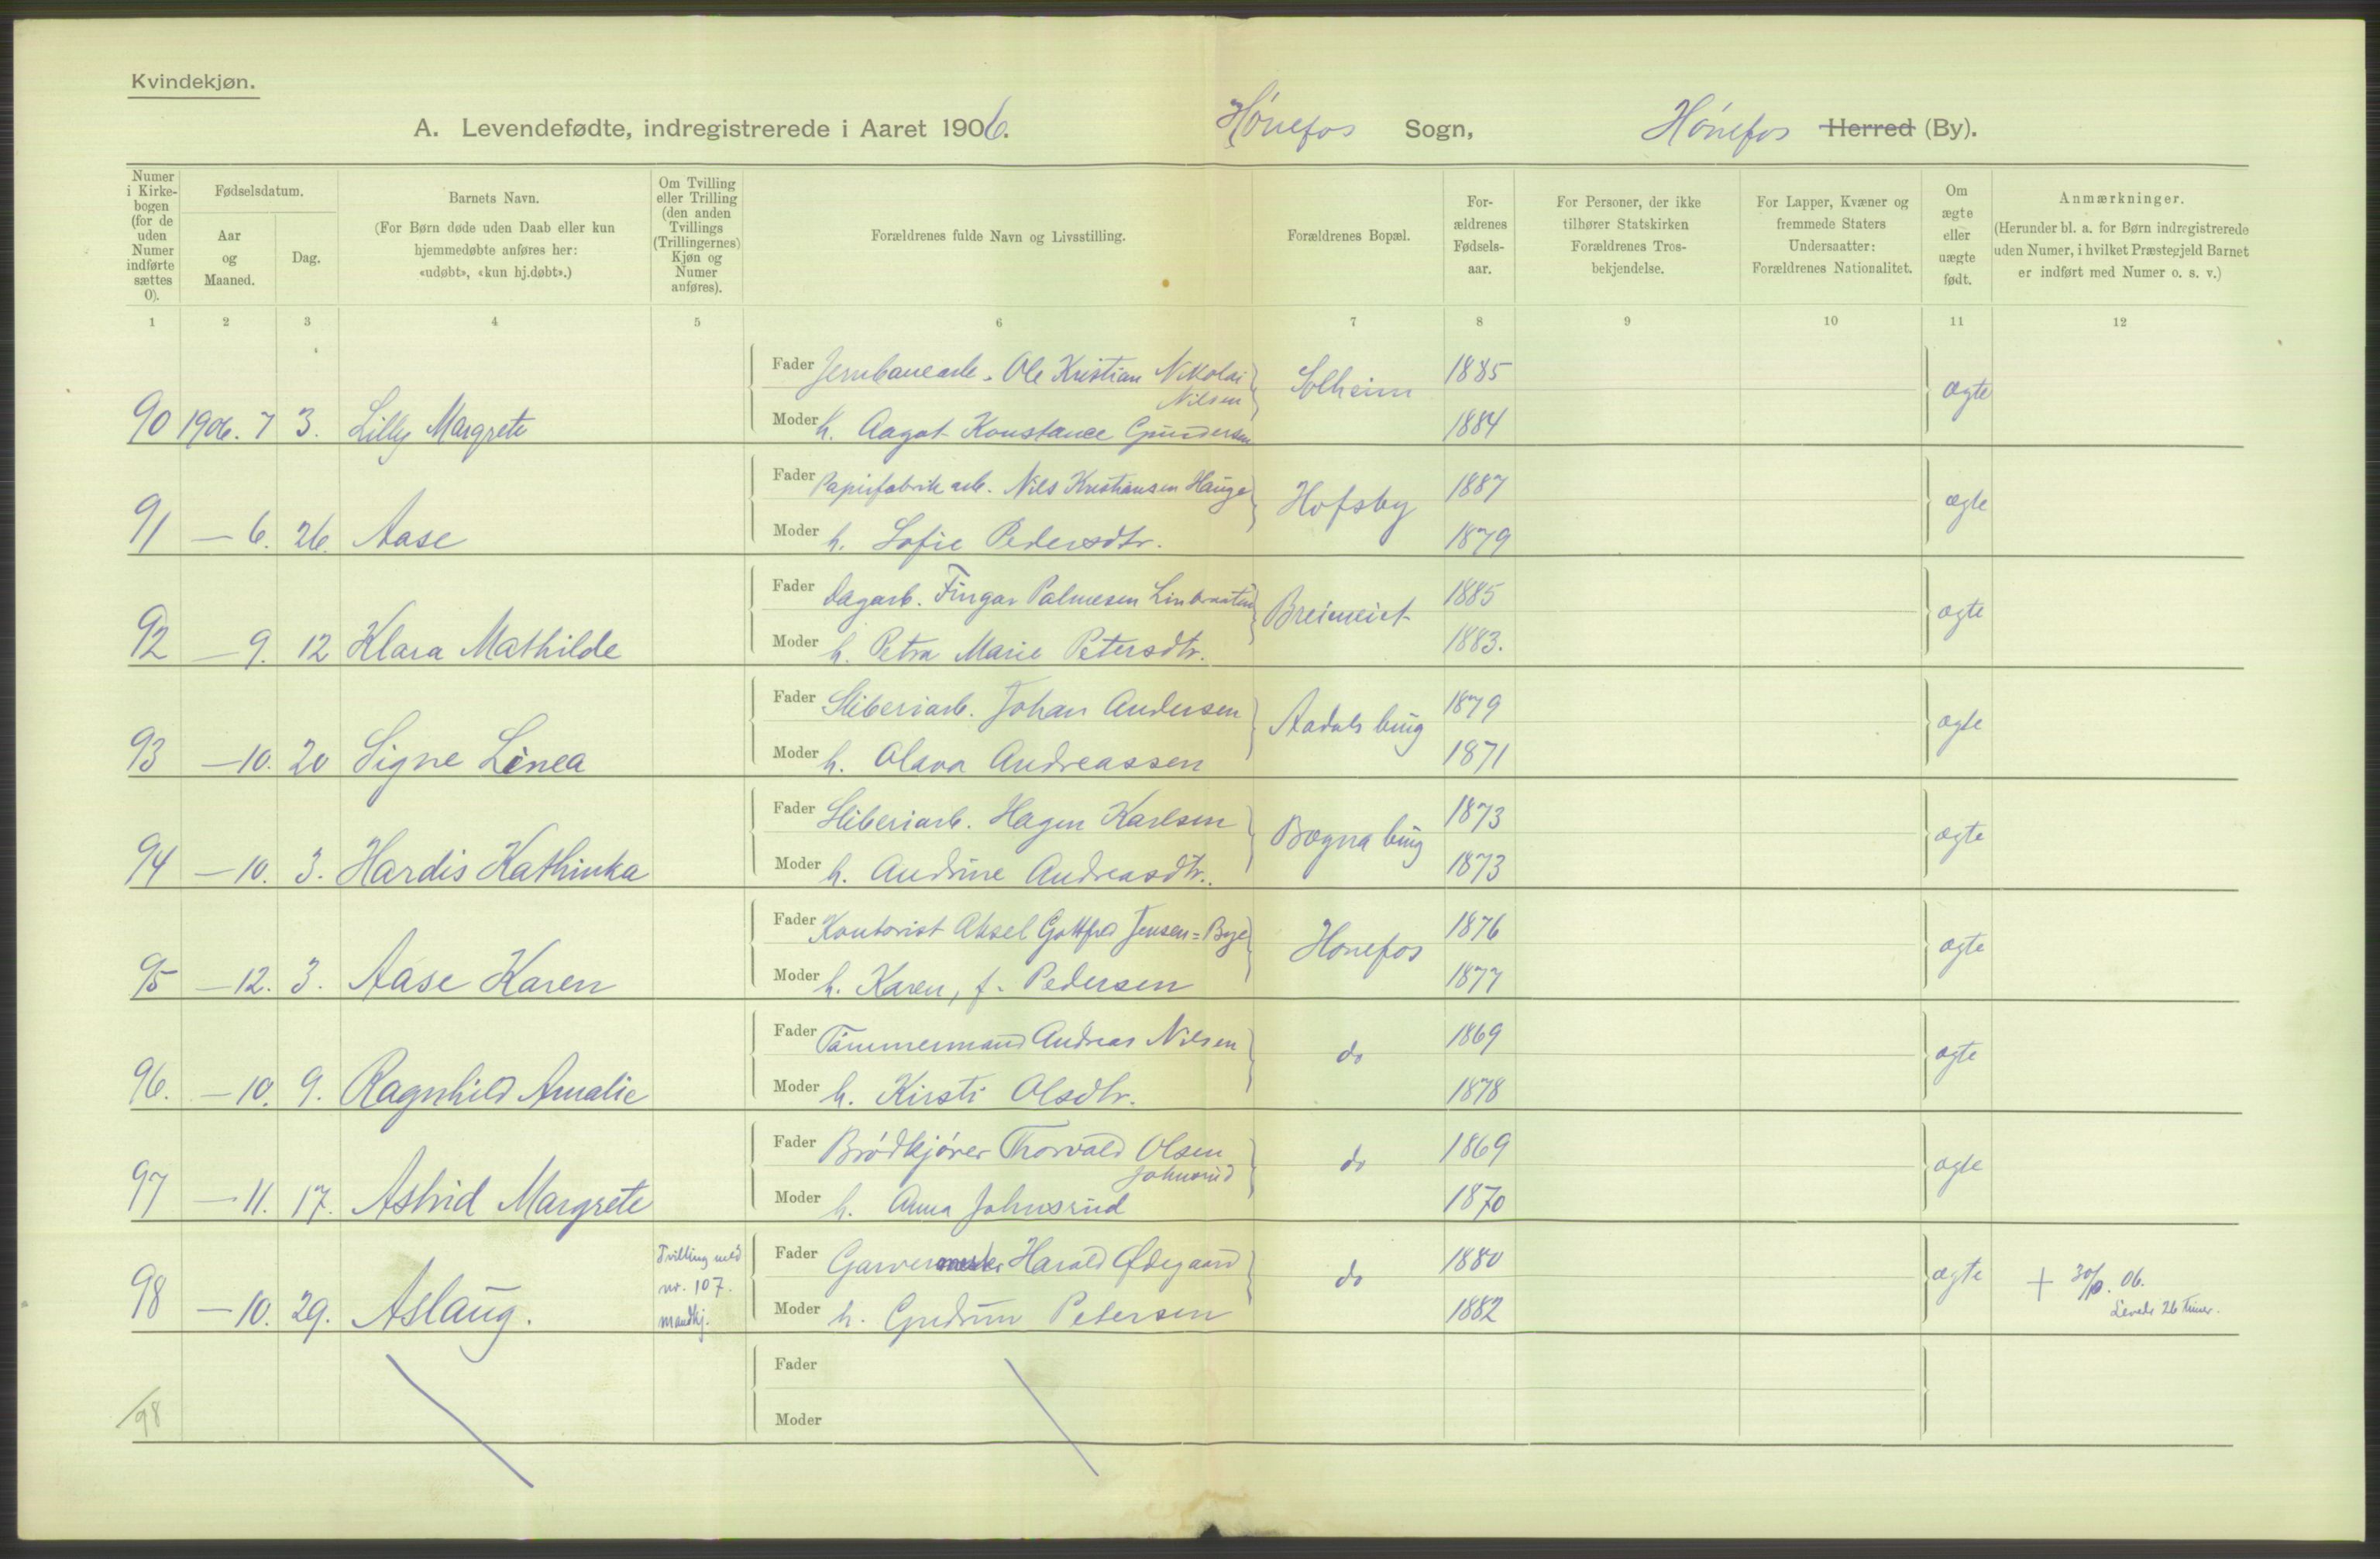 Kvindekjøn.
A. Levendefødte, indregistrerede i Aaret 1906. Hønefos Sogn, Hønefos Herred (By).
Numer i Kirke-bogen (for de uden Numer indførte sættes 0).
Fødselsdatum.
Aar og Maaned.
Dag.
Barnets Navn.
(For Børn døde uden Daab eller kun hjemmedøbte anføres her: «udøbt», «kun hj.døbt».)
Om Tvilling eller Trilling (den anden Tvillings (Trillingernes) Kjøn og Numer anføres).
Forældrenes fulde Navn og Livsstilling.
Forældrenes Bopæl.
For-ældrenes Fødsels-aar.
For Personer, der ikke tilhører Statskirken Forældrenes Tros-bekjendelse.
For Lapper, Kvæner og fremmede Staters Undersaatter: Forældrenes Nationalitet.
Om ægte eller uægte født.
Anmærkninger.
(Herunder bl. a. for Børn indregistrerede uden Numer, i hvilket Præstegjeld Barnet er indført med Numer o. s. v.)
1 2 3 4 5 6 7 8 9 10 11 12
Fader Jernbanearb. Ole Kristian Nikolai Nilsen Solheim 1885 ægte
90 1906. 7 3. Lilly Margrete Moder h. Aagot Konstance Gundersen 1884
Fader Papirfabrik arb. Nils Kristiansen Hauge Hofsby 1887 ægte
91 — 6. 26. Aase Moder h. Sofie Pedersdtr. 1879
Fader Dagarb. Fingar Palmesen 1885 ægte
92 — 9. 12 Klara Mathilde Moder h. Petra Marie Petersdtr. 1883.
Fader Sliberiarb. Johan Andersen Aadals brug 1879 ægte
93 — 10. 20 Signe Linea Moder h. Olava Andreassen 1871
Fader Sliberiarb. Hagen Karlsen Bægna brug 1873 ægte
94 — 10. 3. Hardis Kathinka Moder h. Andrine Andreasdtr. 1873
Fader Kontorist Aksel Gottfred Jensen=Bye Hønefos 1876 ægte
95 — 12. 3. Aase Karen Moder h. Karen, f. Pedersen 1877
Fader Tømmermand Andreas Nilsen do 1869 ægte
96. — 10. 9. Ragnhild Amalie Moder h. Kirsti Olsdtr. 1878
Fader Brødkjører Thorvald Olsen Johnsrud do 1869 ægte
97 — 11. 17. Astrid Margrete Moder h. Anna Johnsrud 1870
Tvilling med nr. 107. mandkj. Fader Garver Harald Ødegaard do 1880 ægte + 30/10. 06.
Levede 26 Timer.
98 — 10. 29. Aslaug. Moder h. Gudrun Petersen 1882
Fader
/98 Moder